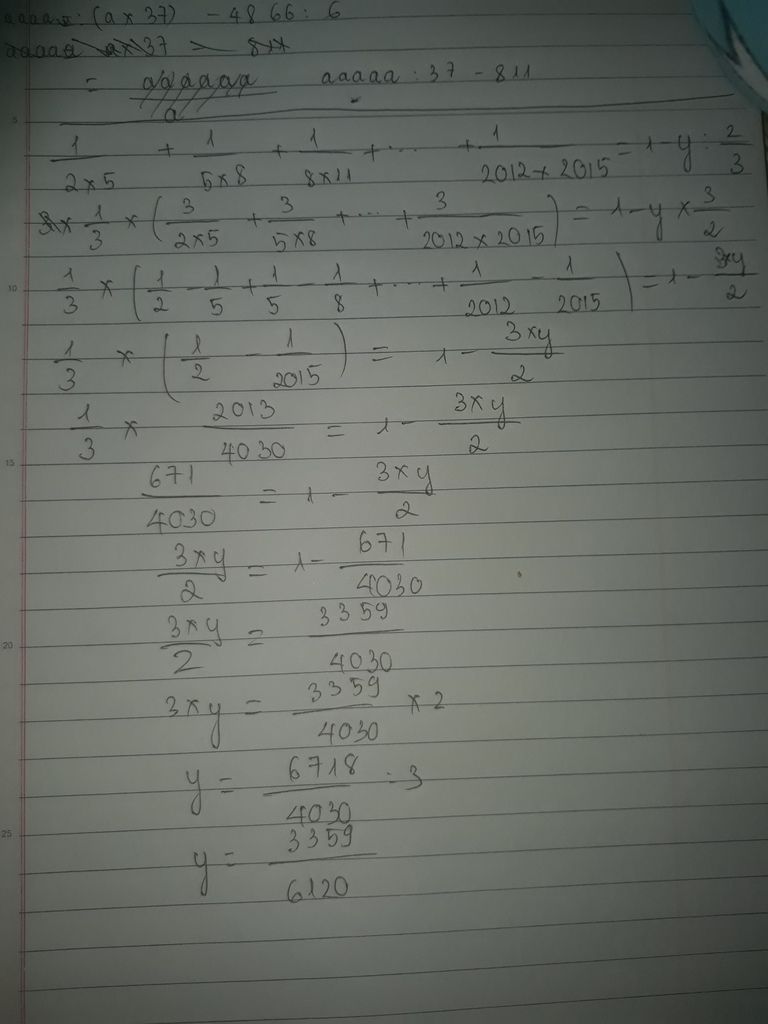 aaaaa : (a x 37) - 4866 : 6
aaaaa ax 37 - 811
= aaaaaa/a aaaaa : 37 - 811
1/2x5 + 1/5x8 + 1/8x11 + ... + 1/2012x2015 = 1 - y : 2/3
1/3 x (3/2x5 + 3/5x8 + ... + 3/2012x2015) = 1 - y x 3/2
1/3 x (1/2 - 1/5 + 1/5 - 1/8 + ... + 1/2012 - 1/2015) = 1 - 3xy/2
1/3 x (1/2 - 1/2015) = 1 - 3xy/2
1/3 x 2013/4030 = 1 - 3xy/2
671/4030 = 1 - 3xy/2
3xy/2 = 1 - 671/4030
3xy/2 = 3359/4030
3xy = 3359/4030 x 2
y = 6718/4030 : 3
y = 3359/6120